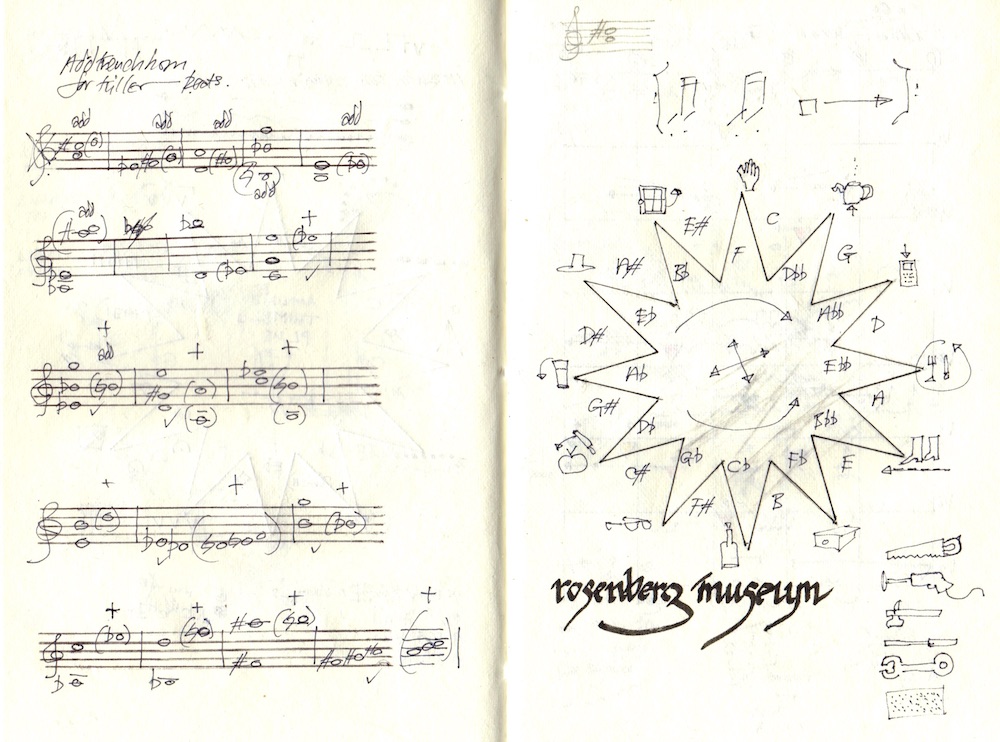 Add frenchhorn
for fuller
add add add add
add
add
+
+
add + +
+ + +
+ + + +
E# C
F
A# Bb Dbb G
D# Eb Abb D
Ab Ebb
G# A
Db Bbb
C# Gb Cb Fb E
F# B
rosenberg museum